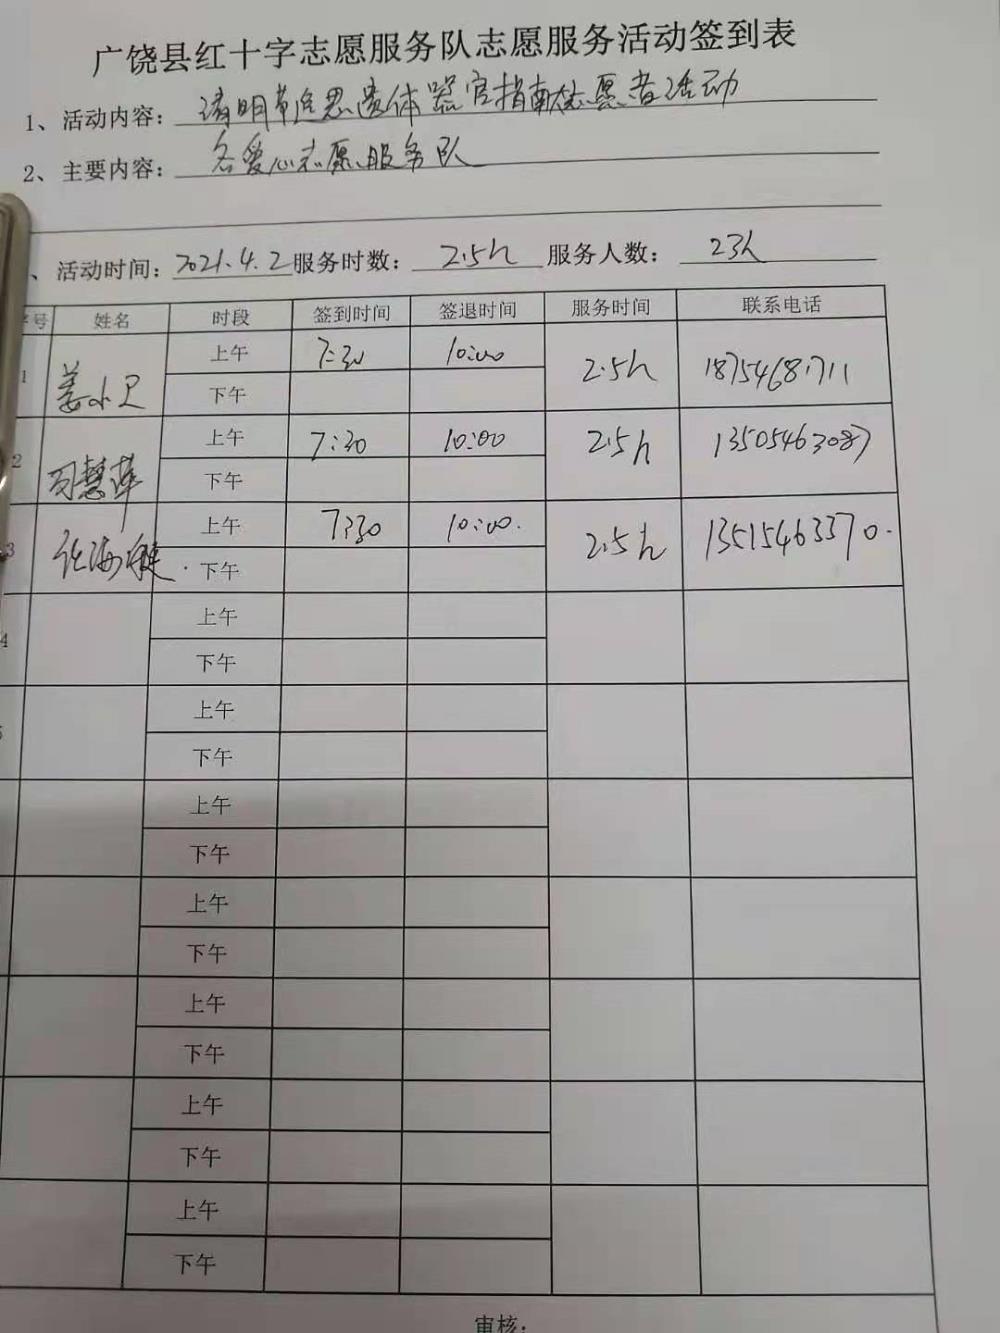 广饶县红十字志愿服务队志愿服务活动签到表
1、活动内容：清明节追思遗体器官捐献志愿者活动
2、主要内容：各爱心志愿服务队
、活动时间：2021.4.2 服务时数：2.5h 服务人数：23人
序号 姓名 时段 签到时间 签退时间 服务时间 联系电话
1 姜小卫 上午 7:30 10:00 2.5h 18754681711
下午
2 司慧萍 上午 7:30 10:00 2.5h 13505463087
下午
3 上午 7:30 10:00. 2.5h 13515463370.
下午
4 上午
下午
5 上午
下午
上午
下午
上午
下午
上午
下午
上午
下午
上午
下午
审核：